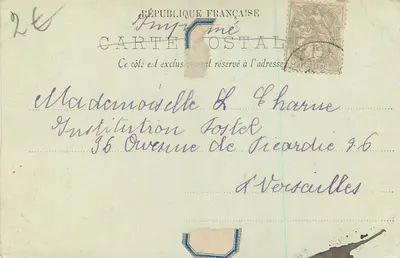 2€
RÉPUBLIQUE FRANÇAISE
Imprimé
CARTE POSTALE
Ce côté est exclusivement réservé à l'adresse
Mademoiselle L Charne
Institution Postel
96 Avenue de Picardie 96
à Versailles